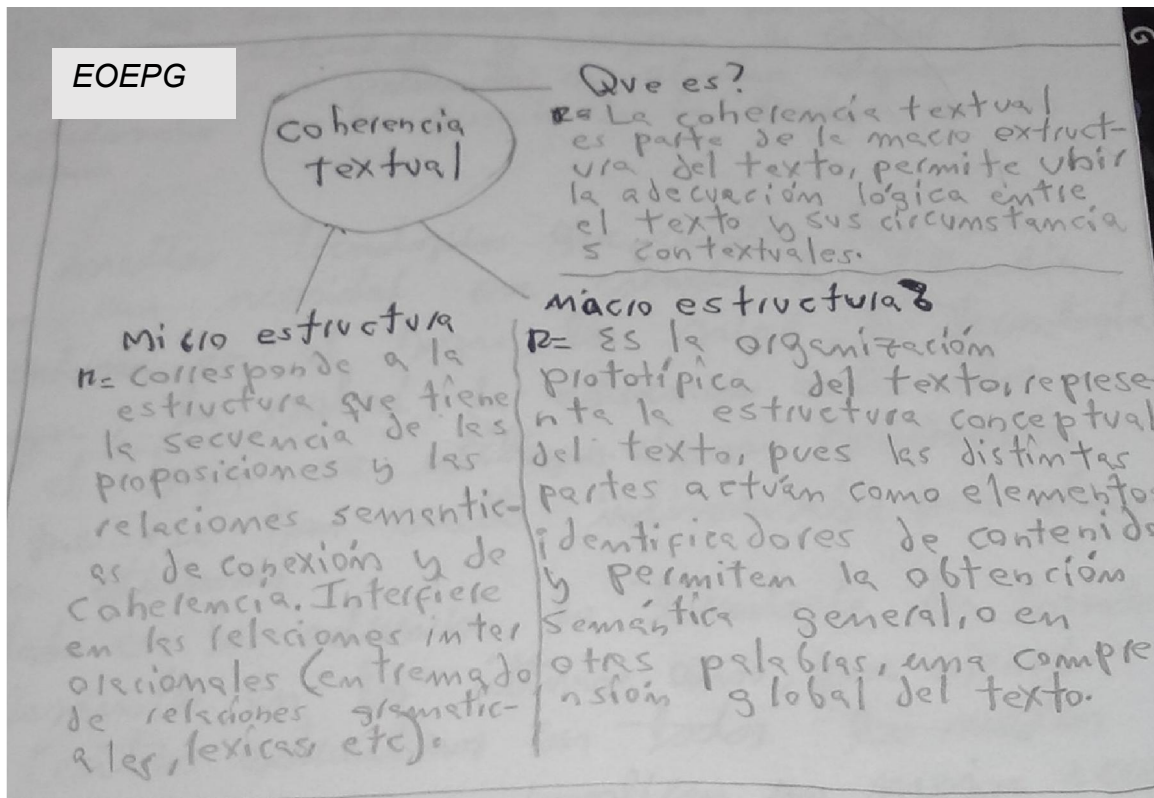 EOEPG
coherencia
textual
Que es?
R= La coherencia textual
es parte de la macro extruct-
ura del texto, permite ubir
la adecuación lógica entre
el texto y sus circumstancia
s contextuales.
Micro estructura
R= corresponde a la
estructura que tiene
la secuencia de las
proposiciones y las
relaciones semantic-
as de conexión y de
coherencia. Interfiere
en las relaciones inter
oracionales (entremado
de relaciones gramatic-
ales, lexicas, etc).
Macro estructura?
R= Es la organización
prototípica del texto, represe
nta la estructura conceptual
del texto, pues las distintas
partes actúan como elemento
identificadores de contenido
y permiten la obtención
semántica general, o en
otras palabras, una compre
nsión global del texto.